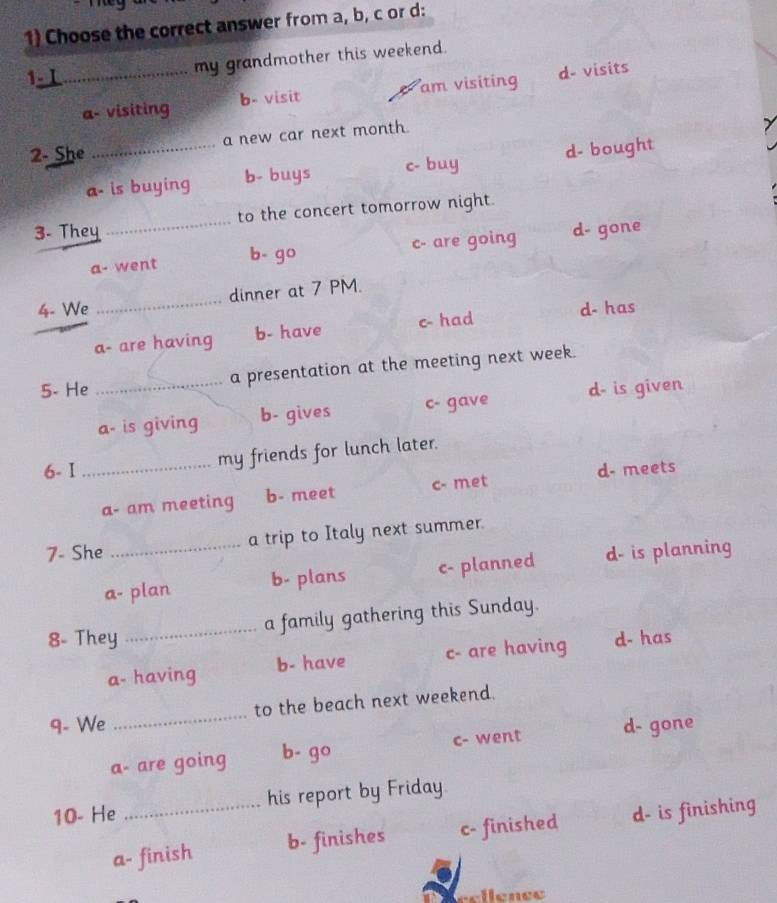 1) Choose the correct answer from a, b, c or d:
1- I ............ my grandmother this weekend.
a- visiting b- visit c- am visiting d- visits
2- She ............ a new car next month.
a- is buying b- buys c- buy d- bought
3- They ............ to the concert tomorrow night.
a- went b- go c- are going d- gone
4- We ............ dinner at 7 PM.
a- are having b- have c- had d- has
5- He ............ a presentation at the meeting next week.
a- is giving b- gives c- gave d- is given
6- I ............ my friends for lunch later.
a- am meeting b- meet c- met d- meets
7- She ............ a trip to Italy next summer.
a- plan b- plans c- planned d- is planning
8- They ............ a family gathering this Sunday.
a- having b- have c- are having d- has
9- We ............ to the beach next weekend.
a- are going b- go c- went d- gone
10- He ............ his report by Friday.
a- finish b- finishes c- finished d- is finishing